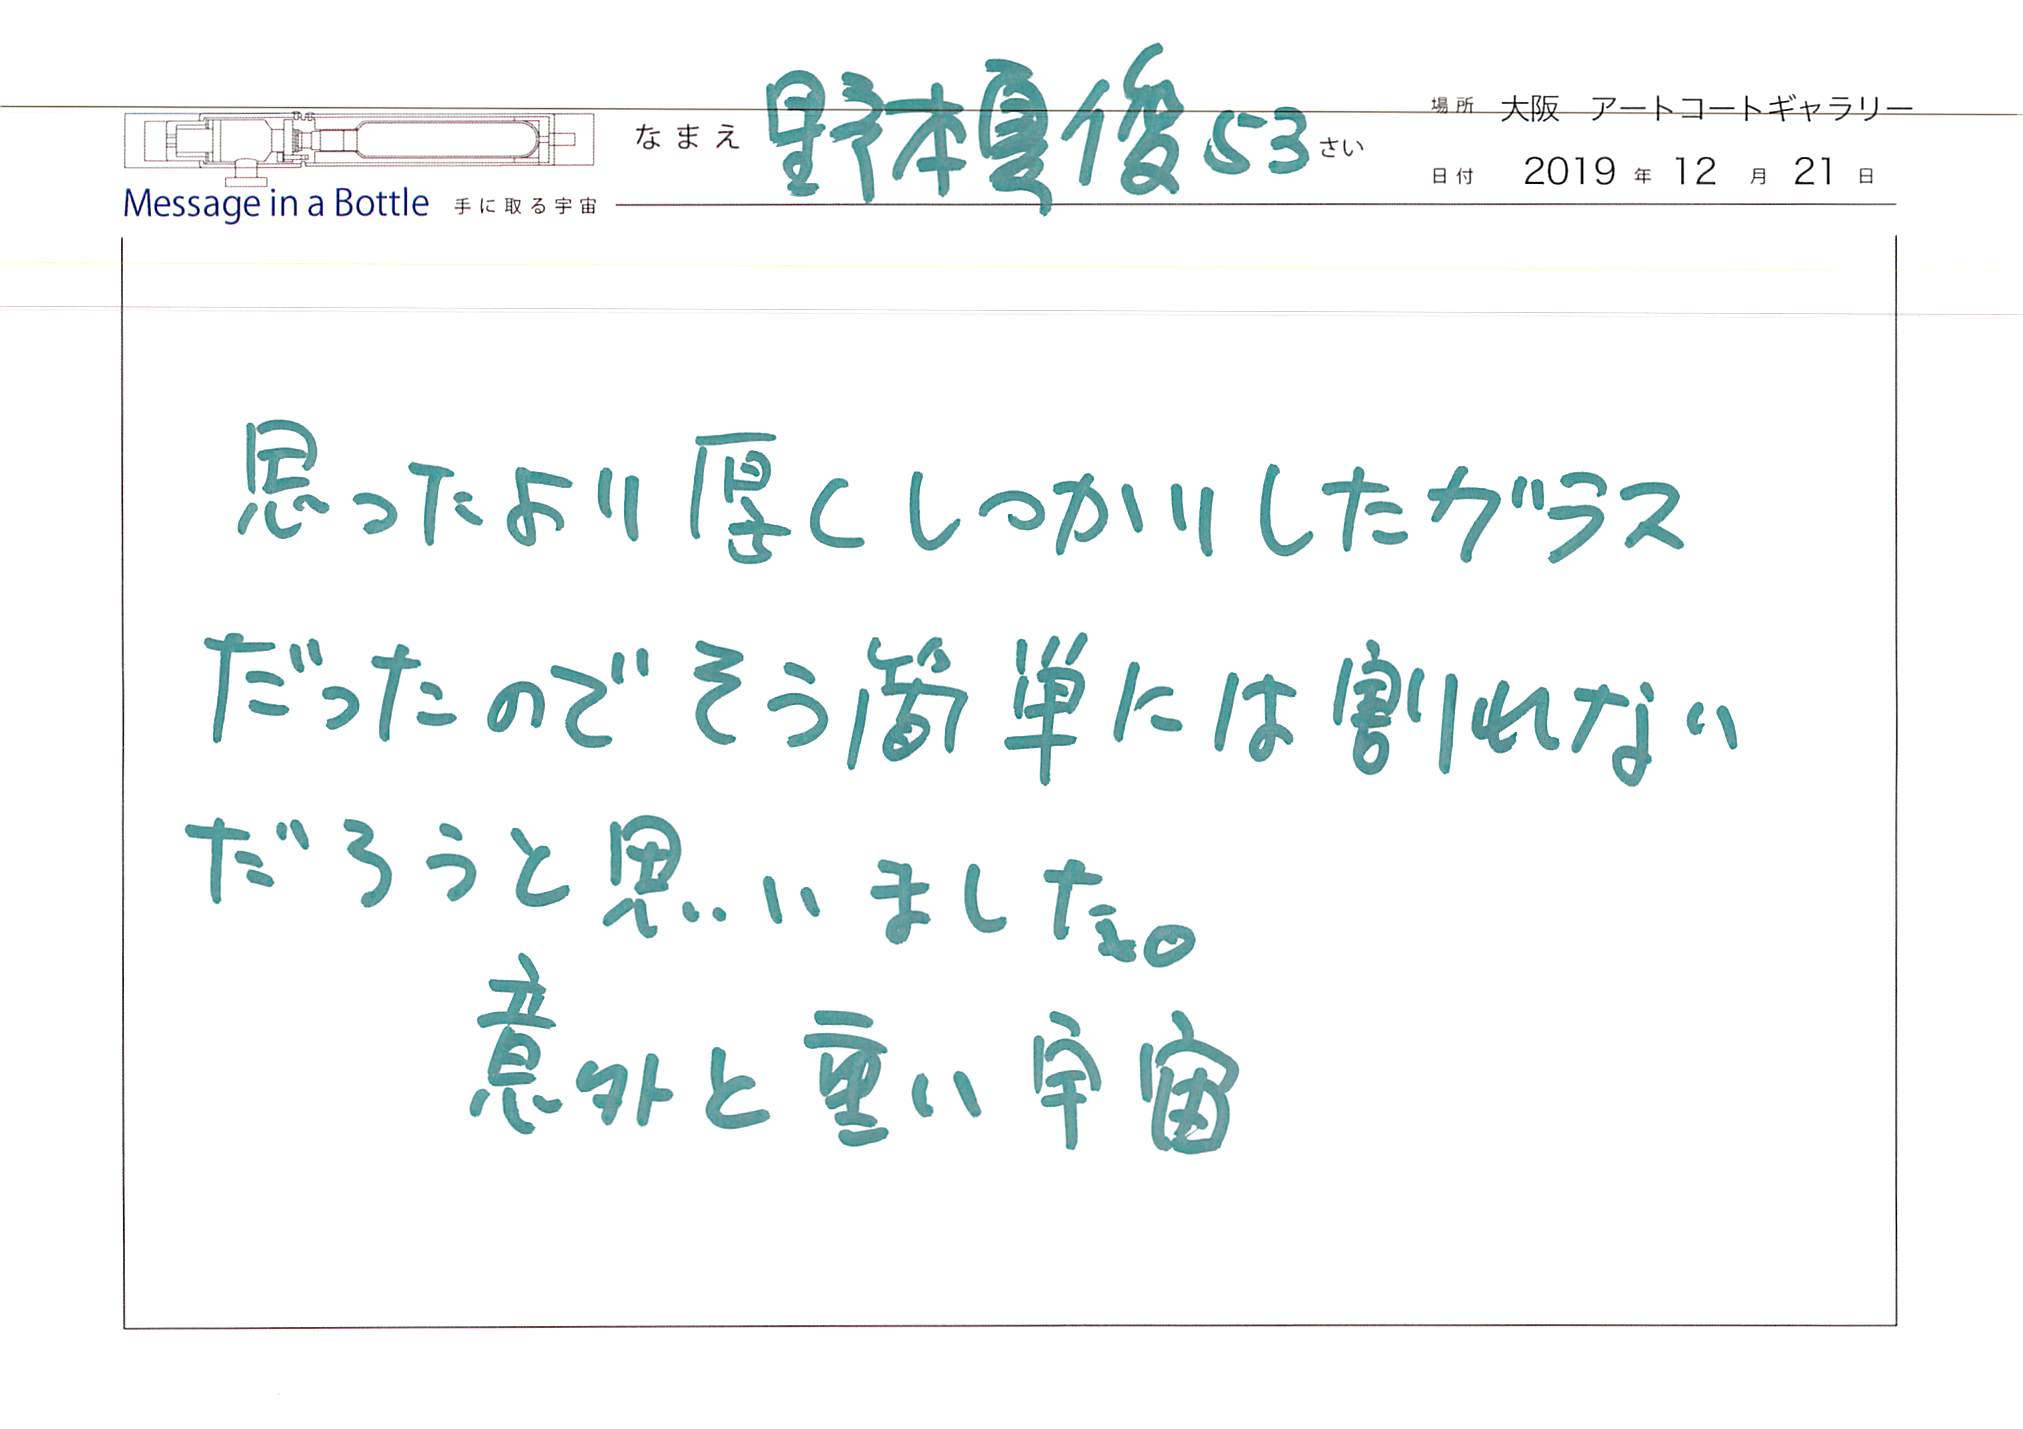 なまえ 野本夏俊 53 さい
場所 大阪 アートコートギャラリー
日付 2019 年 12 月 21 日
Message in a Bottle 手に取る宇宙
思ったより厚くしっかりしたガラス
だったのでそう簡単には割れない
だろうと思いました。
意外と重い宇宙